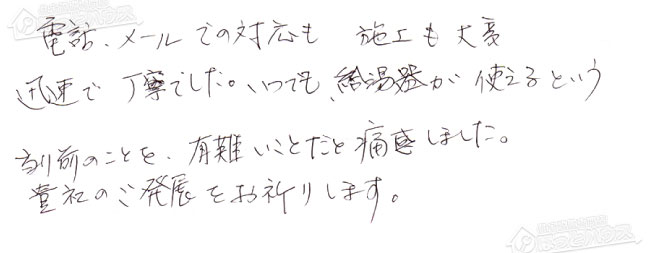 電話、メールでの対応も 施工も大変
迅速で丁寧でした。いつでも、給湯器が使えるという
当り前のことを、有難いことだと痛感しました。
貴社のご発展をお祈りします。